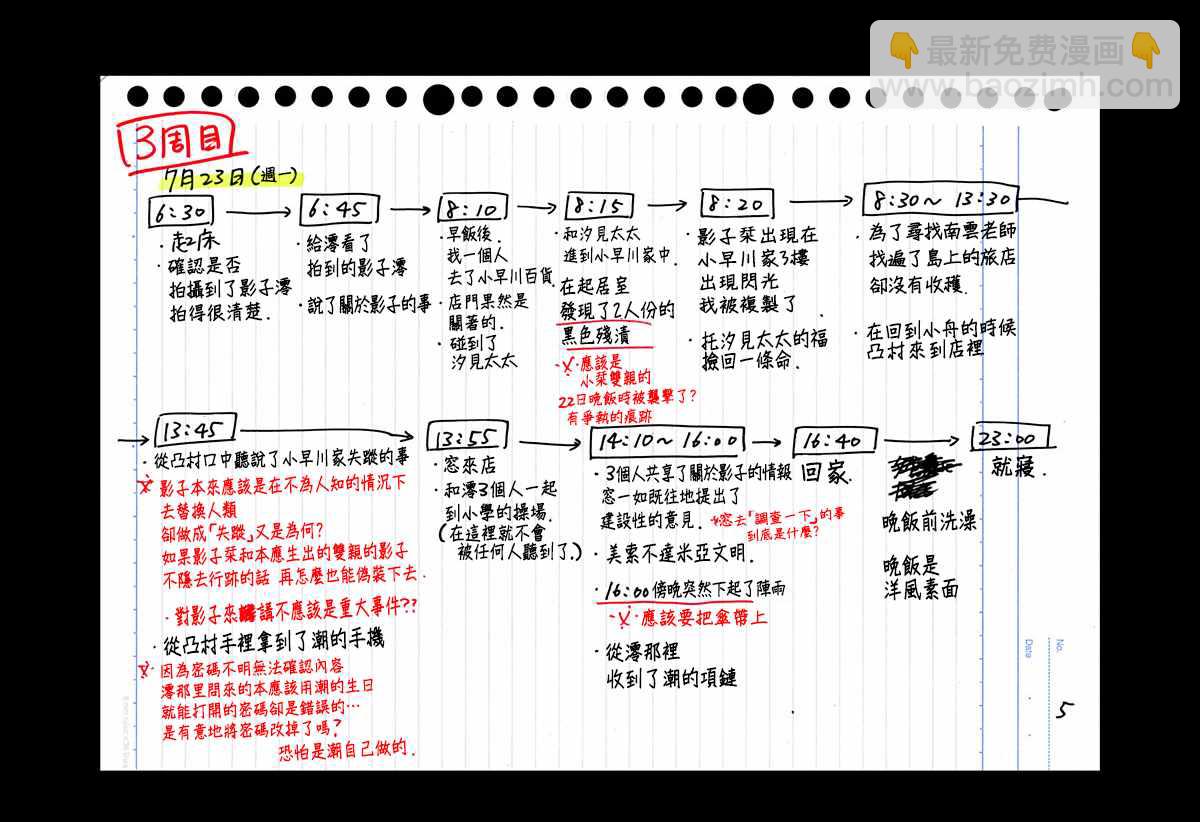 👇最新免费漫画👇
www.baozimh.com
3周目
7月23日(週一)
6:30
・起床
・確認是否
拍攝到了影子澪
拍得很清楚.
6:45
・給澪看了
拍到的影子澪
・說了關於影子的事
8:10
・早飯後.
我一個人
去了小早川百貨
・店門果然是
關著的.
・碰到了
汐見太太
8:15
・和汐見太太
進到小早川家中.
・在起居室
發現了2人份的
黑色殘漬
・※・應該是
小栞雙親的
22日晚飯時被襲擊了?
有爭執的痕跡
8:20
・影子栞出現在
小早川家3樓
出現閃光
我被複製了.
・托汐見太太的福
撿回一條命.
8:30~13:30
・為了尋找南雲老師
找遍了島上的旅店
卻沒有收穫.
・在回到小舟的時候
凸村來到店裡
13:45
・從凸村口中聽說了小早川家失蹤的事
※影子本來應該是在不為人知的情況下
去替換人類
卻做成「失蹤」又是為何?
如果影子栞和本應生出的雙親的影子
不隱去行跡的話 再怎麼也能偽裝下去.
・對影子來講不應該是重大事件??
・從凸村手裡拿到了潮的手機
※・因為密碼不明無法確認內容
澪那里問來的本應該用潮的生日
就能打開的密碼卻是錯誤的…
是有意地將密碼改掉了嗎?
恐怕是潮自己做的.
13:55
・窓來店
・和澪3個人一起
到小學的操場.
(在這裡就不會
被任何人聽到了.)
14:10~16:00
・3個人共享了關於影子的情報
窓一如既往地提出了
建設性的意見. *窓去「調查一下」的事
到底是什麼?
・美索不達米亞文明.
・16:00傍晚突然下起了陣雨
・※・應該要把傘帶上
・從澪那裡
收到了潮的項鏈
16:40
回家.
晚飯前洗澡
晚飯是
洋風素面
23:00
就寢.
No.
Date
5